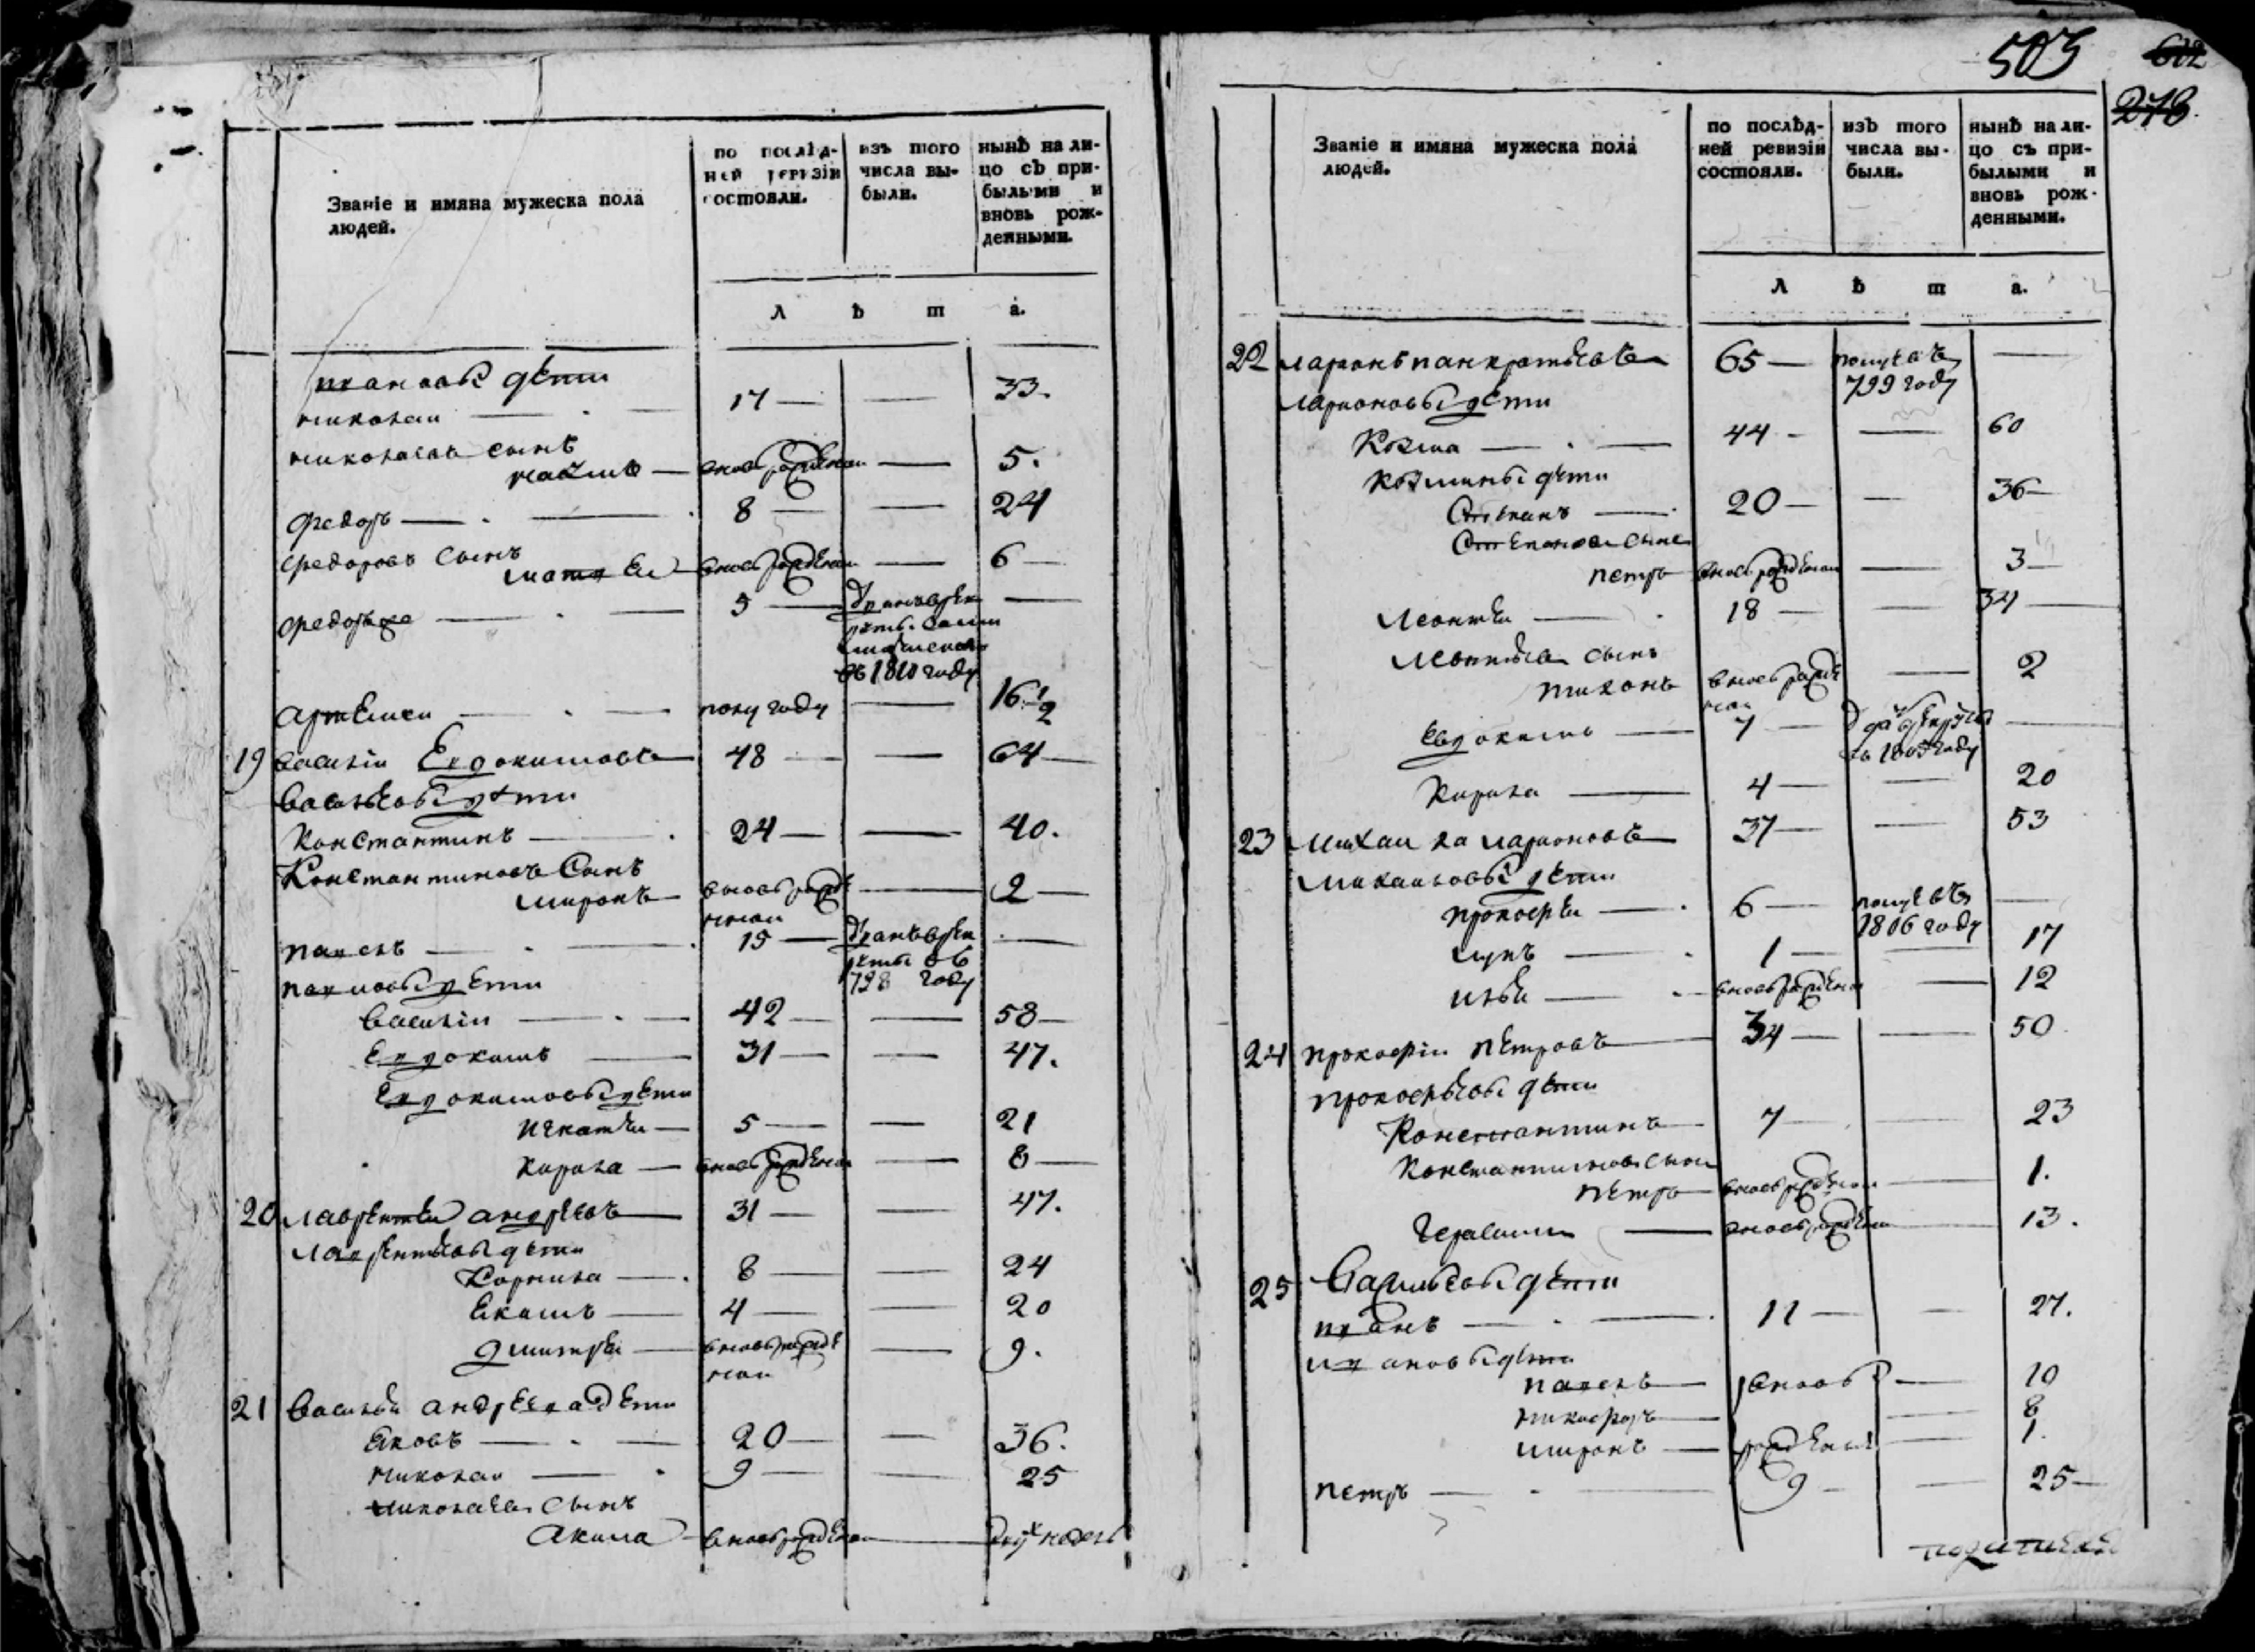 503
612
278.
Званіе и имяна мужеска пола
людей.
по послѣд-
ней ревизіи
состояли.
изъ того
числа вы-
были.
нынѣ на ли-
цо съ при-
былыми и
вновь рож-
денными.
л ѣ т а.
ивановы дѣти
николаи 17 33.
николаевъ сынъ
наумъ вновь рожденъ 5.
федоръ 8 24
федоровъ сынъ
матвеи вновь рожденъ 6
федотъ же 5
въ 1810 году
артемеи полу году 16 1/2
19 василіи Евдокимовъ 48 64
васильевы дѣти
константинъ 24 40.
Константиновъ Сынъ
миронъ вновь рожде 2
ненъ
павелъ 15 въ рек
руты въ
798 году
павловы дѣти
василіи 42 58
Евдокимъ 31 47.
Евдокимовы дѣти
игнатеи 5 21
кирила вновь рожденъ 8
20 лаврентеи андреевъ 31 47.
лаврентьевы дѣти
корнила 8 24
Екимъ 4 20
дмитреи вновь рожде 9.
ненъ
21 василья андреева дѣти
яковъ 20 36.
николаи 9 25
николаевъ сынъ
акила вновь рожденъ двух недель
Званіе и имяна мужеска пола
людей.
по послѣд-
ней ревизіи
состояли.
изъ того
числа вы-
были.
нынѣ на ли-
цо съ при-
былыми и
вновь рож-
денными.
л ѣ т а.
22 ларионъ панкратьевъ 65 умре въ
799 году
ларионовы дѣти
Козма 44 60
козмины дѣти
Степанъ 20 36
Степановъ сынъ
петръ вновь рожденъ 3
леонтеи 18 34
леонтьевъ сынъ
тихонъ вновь рожде 2
ненъ
Евдокимъ 7 въ рекруты
въ 1805 году
кирила 4 20
23 михаила ларионовъ 37 53
михаиловы дѣти
прокофеи 6 умре въ
1806 году
лупъ 1 17
илья вновь рожденъ 12
24 прокофіи петровъ 34 50
прокофьевы дѣти
Константинъ 7 23
константиновъ сынъ
петръ вновь рожденъ 1.
герасимъ вновь рожденъ 13.
25 Васильевы дѣти
иванъ 11 27.
ивановы дѣти
павелъ вновь 10
никифоръ 8
миронъ рождены 1.
петръ 9 25